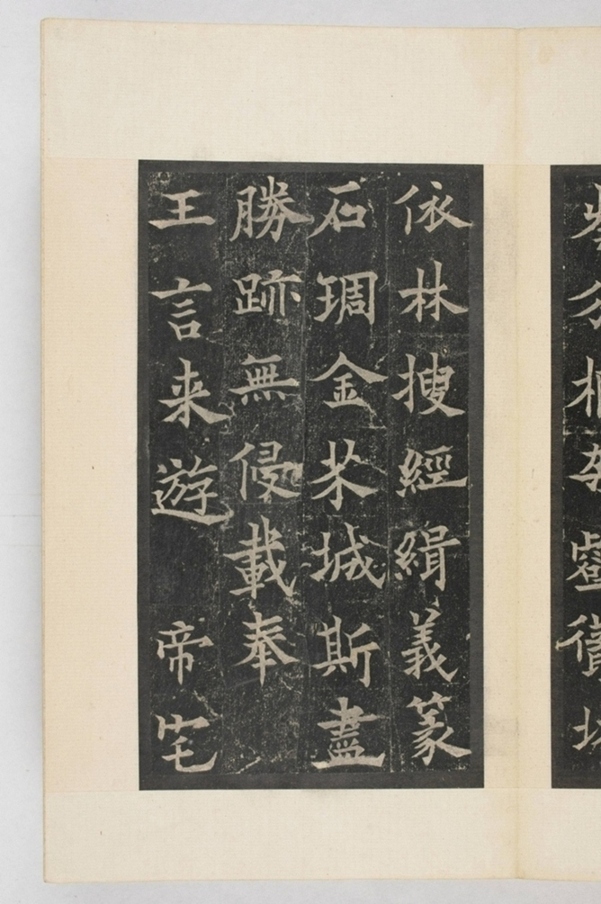 依林搜經緝義篆
石琱金芥城斯盡
勝跡無侵載奉
王言来遊 帝宅